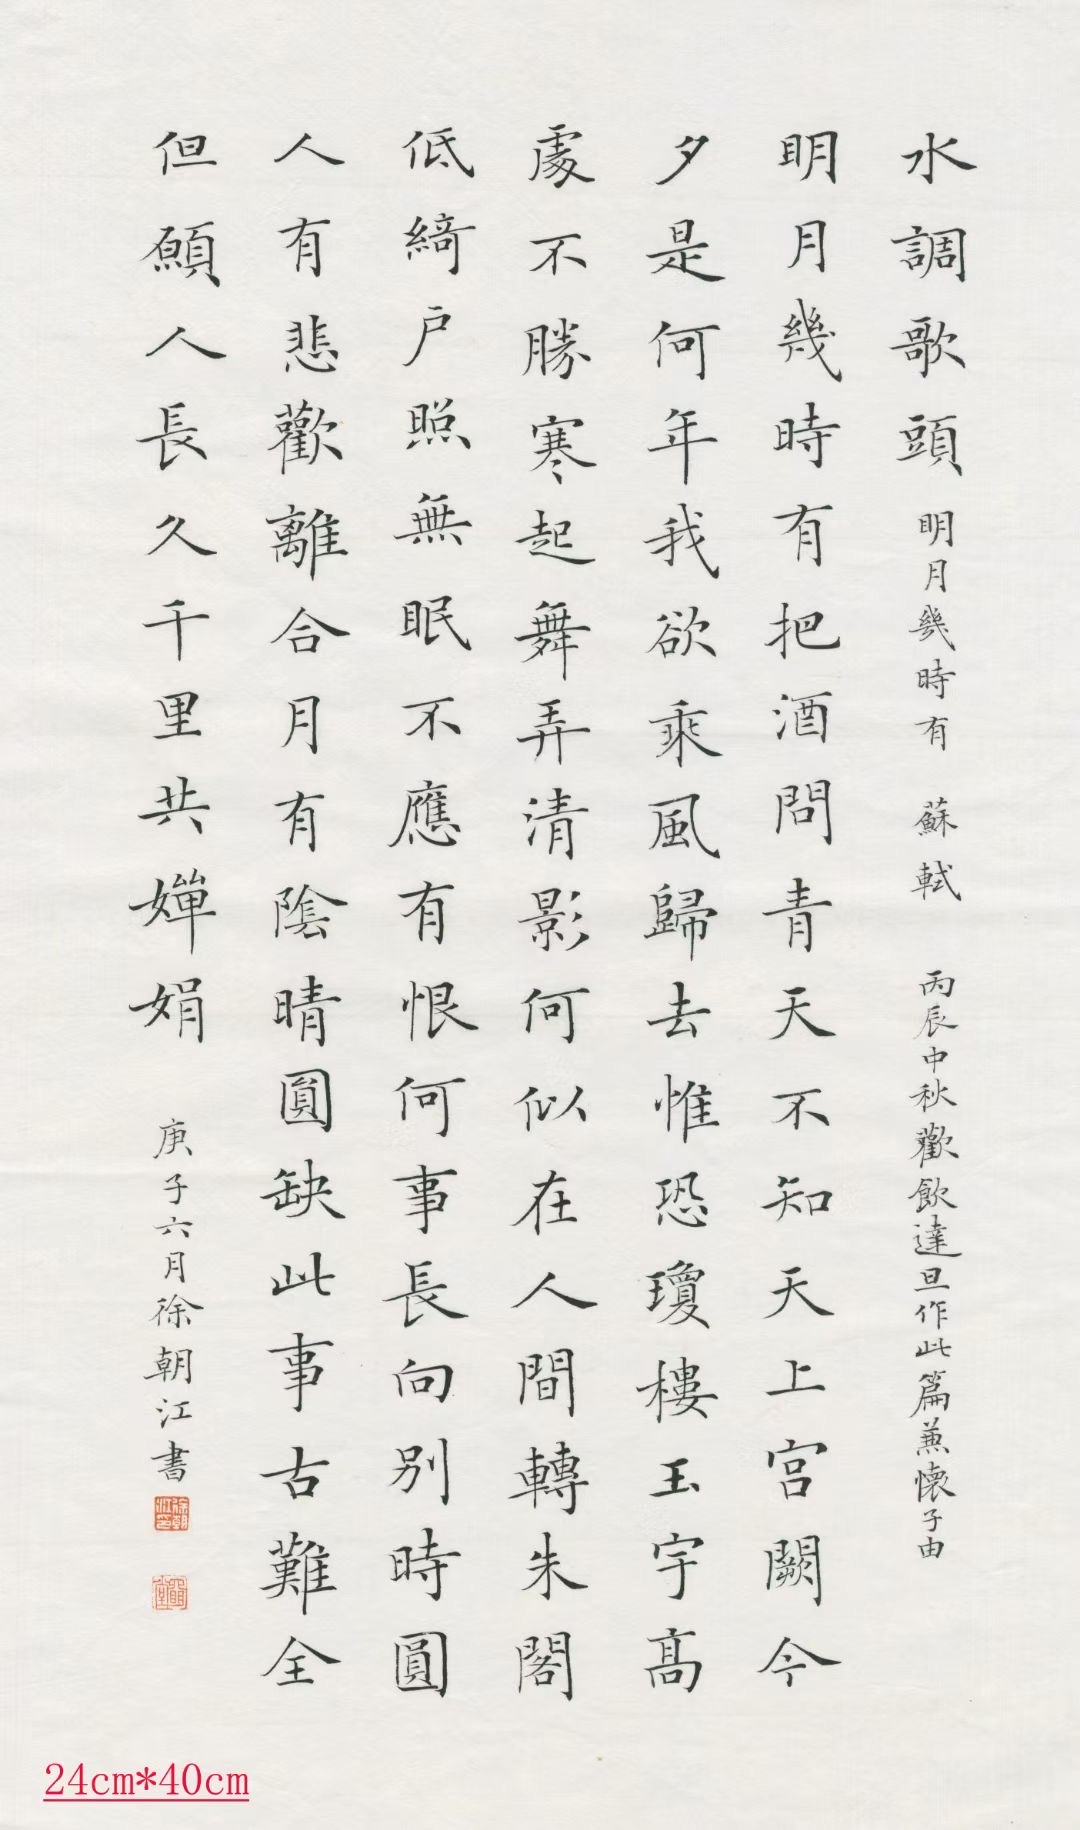 水調歌頭 明月幾時有 蘇軾 丙辰中秋歡飲達旦作此篇兼懷子由
明月幾時有把酒問青天不知天上宮闕今
夕是何年我欲乘風歸去惟恐瓊樓玉宇高
處不勝寒起舞弄清影何似在人間轉朱閣
低綺戶照無眠不應有恨何事長向別時圓
人有悲歡離合月有陰晴圓缺此事古難全
但願人長久千里共嬋娟 庚子六月徐朝江書
徐朝江印
24cm*40cm